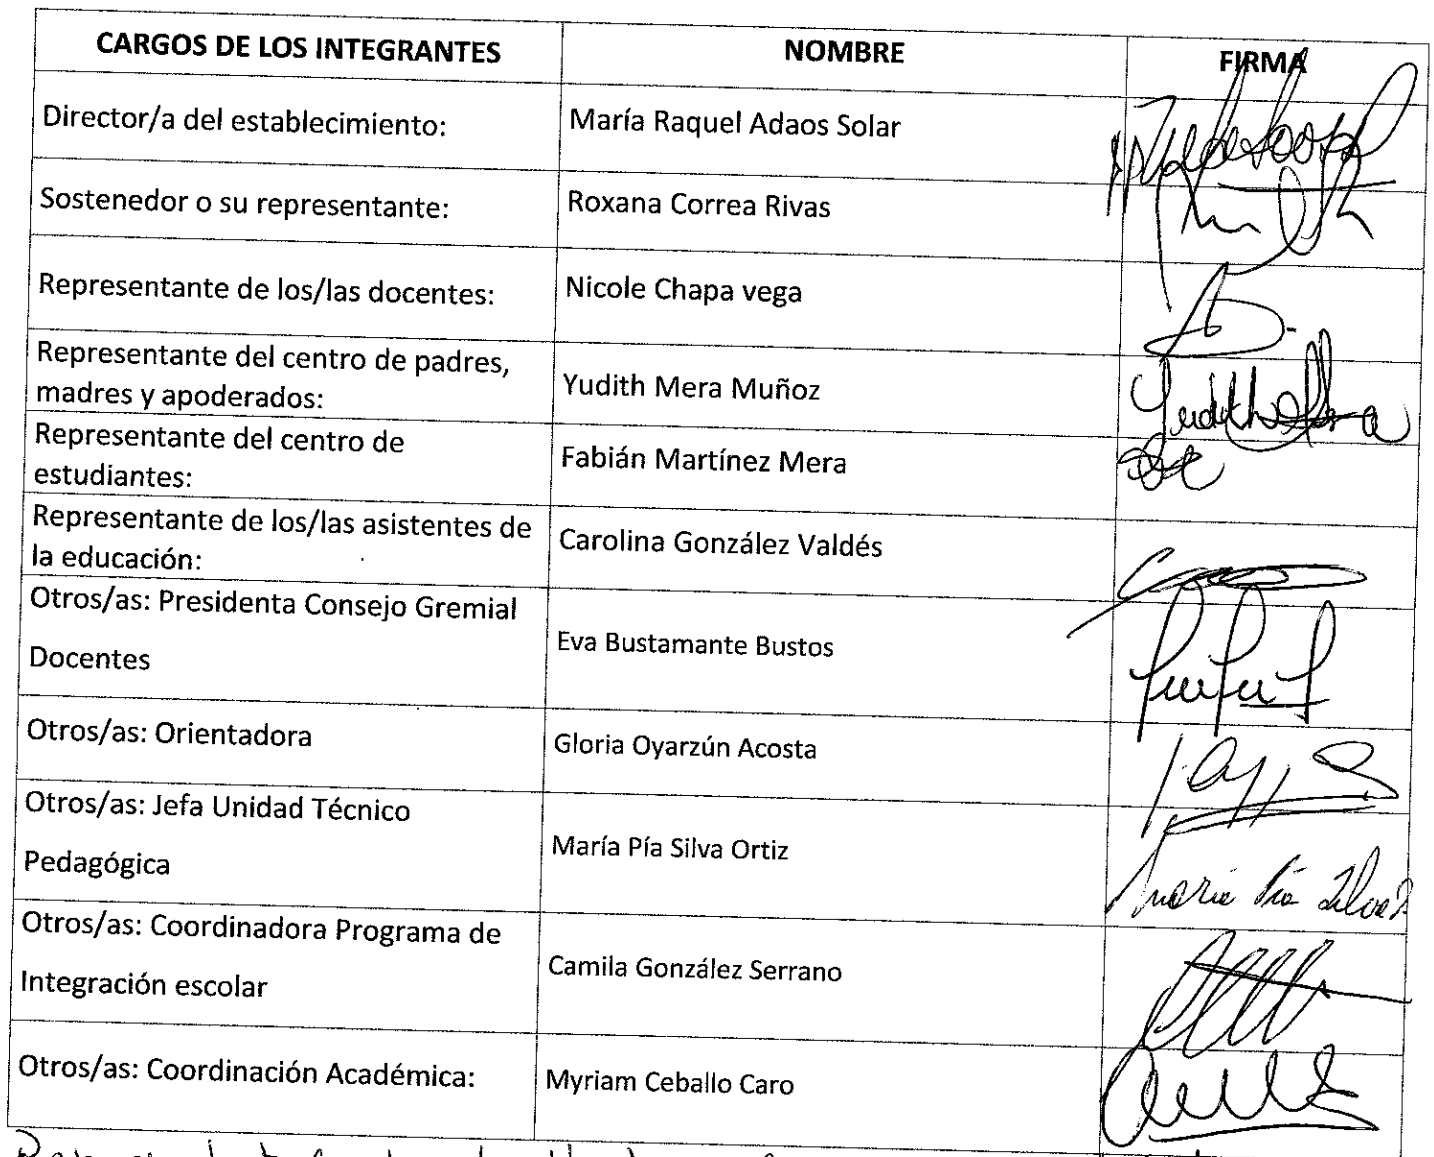 CARGOS DE LOS INTEGRANTES NOMBRE FIRMA
Director/a del establecimiento: María Raquel Adaos Solar
Sostenedor o su representante: Roxana Correa Rivas
Representante de los/las docentes: Nicole Chapa vega
Representante del centro de padres,
madres y apoderados: Yudith Mera Muñoz
Yudith Mera
Representante del centro de
estudiantes: Fabián Martínez Mera
Representante de los/las asistentes de
la educación: Carolina González Valdés
Otros/as: Presidenta Consejo Gremial
Docentes Eva Bustamante Bustos
Otros/as: Orientadora Gloria Oyarzún Acosta
Otros/as: Jefa Unidad Técnico
Pedagógica María Pía Silva Ortiz
María Pía Silva
Otros/as: Coordinadora Programa de
Integración escolar Camila González Serrano
Otros/as: Coordinación Académica: Myriam Ceballo Caro